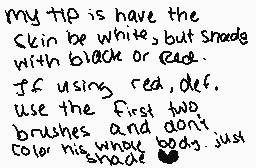 my tip is have the
skin be white, but shade
with black or red.
If using red, def.
use the first two
brushes and don't
color his whole body. just
shade ♥